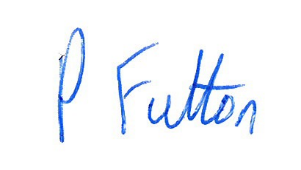 P Fulton